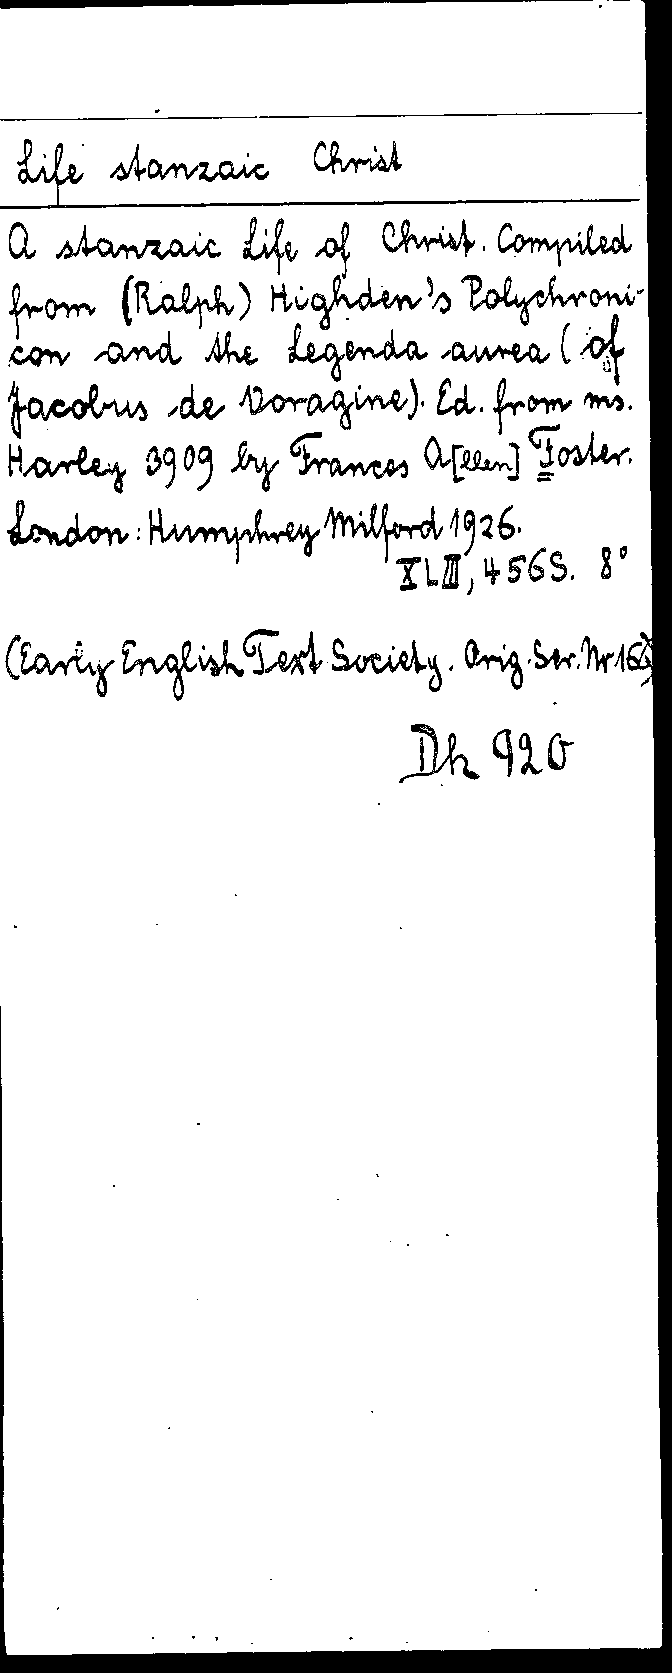 Life stanzaic Christ
A stanzaic Life of Christ. Compiled
from (Ralph) Highden's Polychroni-
con and the Legenda aurea (of
Jacobus de Voragine). Ed. from ms.
Harley 3909 by Frances A[llen] Foster.
London: Humphrey Milford 1926.
XLIII, 456 S. 8°
(Early English Text Society. Orig. Ser. Nr 166)
Dk 920